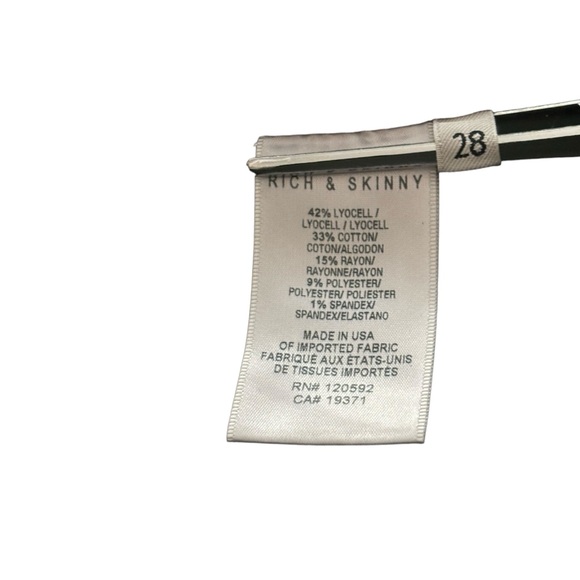 28
RICH & SKINNY
42% LYOCELL /
LYOCELL / LYOCELL
33% COTTON/
COTON/ALGODON
15% RAYON/
RAYONNE/RAYON
9% POLYESTER/
POLYESTER/ POLIESTER
1% SPANDEX/
SPANDEX/ELASTANO
MADE IN USA
OF IMPORTED FABRIC
FABRIQUÉ AUX ÉTATS-UNIS
DE TISSUES IMPORTÉS
RN# 120592
CA# 19371